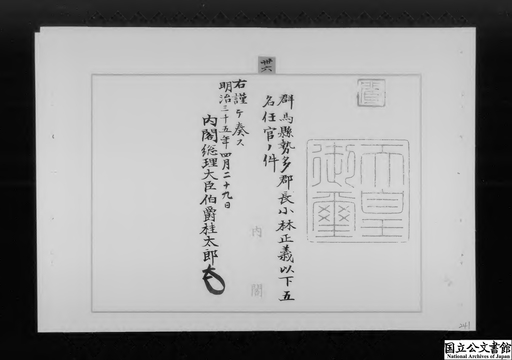 卅六
可
天皇御璽
群馬縣勢多郡長小林正義以下五
名任官ノ件
右謹テ奏ス
明治三十五年四月二十九日
内閣総理大臣伯爵桂太郎
内閣
241
国立公文書館
National Archives of Japan